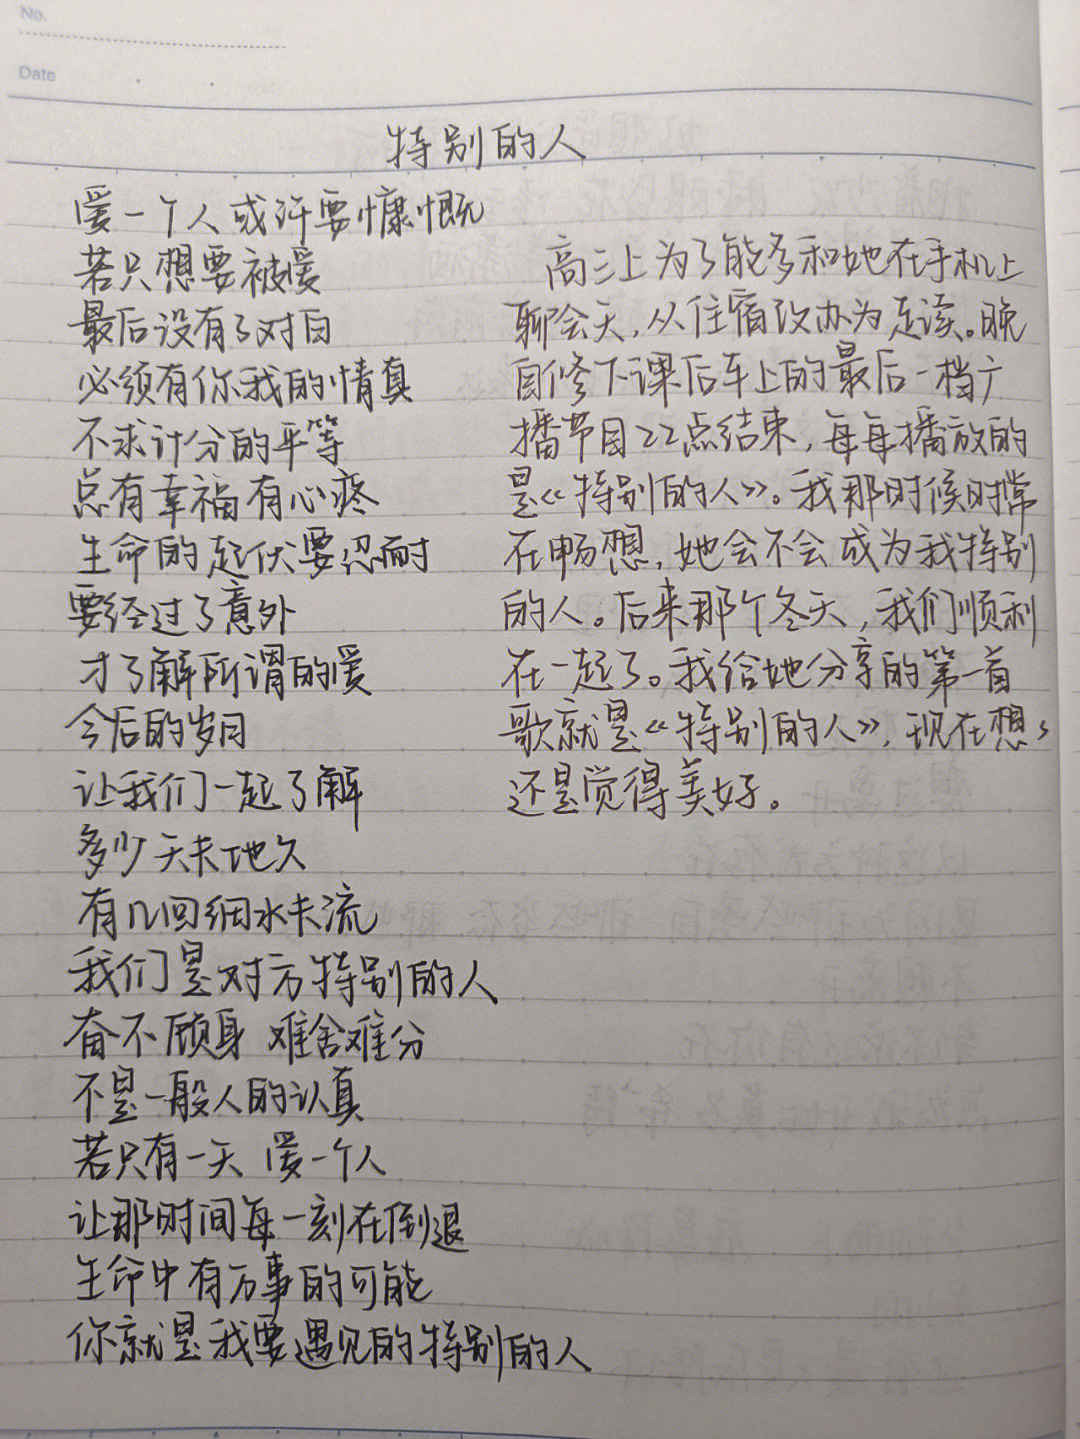 No.
Date
特别的人
爱一个人或许要慷慨
若只想要被爱
最后没有了对白
必须有你我的情真
不求计分的平等
总有幸福有心疼
生命的起伏要忍耐
要经过了意外
才了解所谓的爱
今后的岁月
让我们一起了解
多少天长地久
有几回细水长流
我们是对方特别的人
奋不顾身 难舍难分
不是一般人的认真
若只有一天 爱一个人
让那时间每一刻在倒退
生命中有万事的可能
你就是我要遇见的特别的人
高三上为了能多和她在手机上
聊会天,从住宿改办为走读。晚
自修下课后车上的最后一档广
播节目22点结束,每每播放的
是《特别的人》。我那时候时常
在畅想,她会不会成为我特别
的人。后来那个冬天,我们顺利
在一起了。我给她分享的第一首
歌就是《特别的人》,现在想
还是觉得美好。